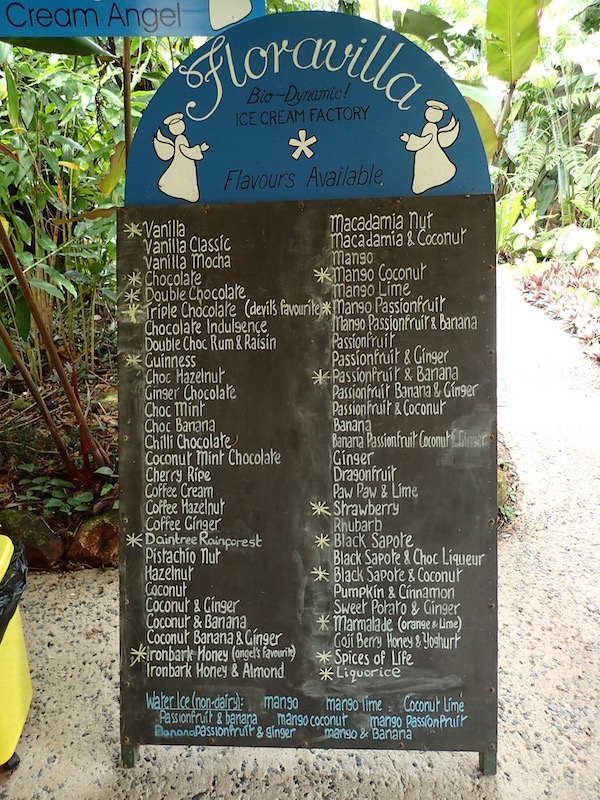 Cream Angel
Floravilla
Bio-Dynamic!
ICE CREAM FACTORY
Flavours Available
Vanilla
Vanilla Classic
Vanilla Mocha
Chocolate
Double Chocolate
Triple Chocolate (devil's favourite)
Chocolate Indulgence
Double Choc Rum & Raisin
Guinness
Choc Hazelnut
Ginger Chocolate
Choc Mint
Choc Banana
Chilli Chocolate
Coconut Mint Chocolate
Cherry Ripe
Coffee Cream
Coffee Hazelnut
Coffee Ginger
Daintree Rainforest
Pistachio Nut
Hazelnut
Coconut
Coconut & Ginger
Coconut & Banana
Coconut Banana & Ginger
Ironbark Honey (angel's favourite)
Ironbark Honey & Almond
Macadamia Nut
Macadamia & Coconut
Mango
Mango Coconut
Mango Lime
Mango Passionfruit
Mango Passionfruit & Banana
Passionfruit
Passionfruit & Ginger
Passionfruit & Banana
Passionfruit Banana & Ginger
Passionfruit & Coconut
Banana
Banana Passionfruit Coconut & Ginger
Ginger
Dragonfruit
Paw Paw & Lime
Strawberry
Rhubarb
Black Sapote
Black Sapote & Choc Liqueur
Black Sapote & Coconut
Pumpkin & Cinnamon
Sweet Potato & Ginger
Marmalade (orange & Lime)
Goji Berry Honey & Yoghurt
Spices of Life
Liquorice
Water Ice (non-dairy): mango mango lime Coconut Lime
Passionfruit & banana mango coconut mango Passionfruit
Banana passionfruit & ginger mango & Banana